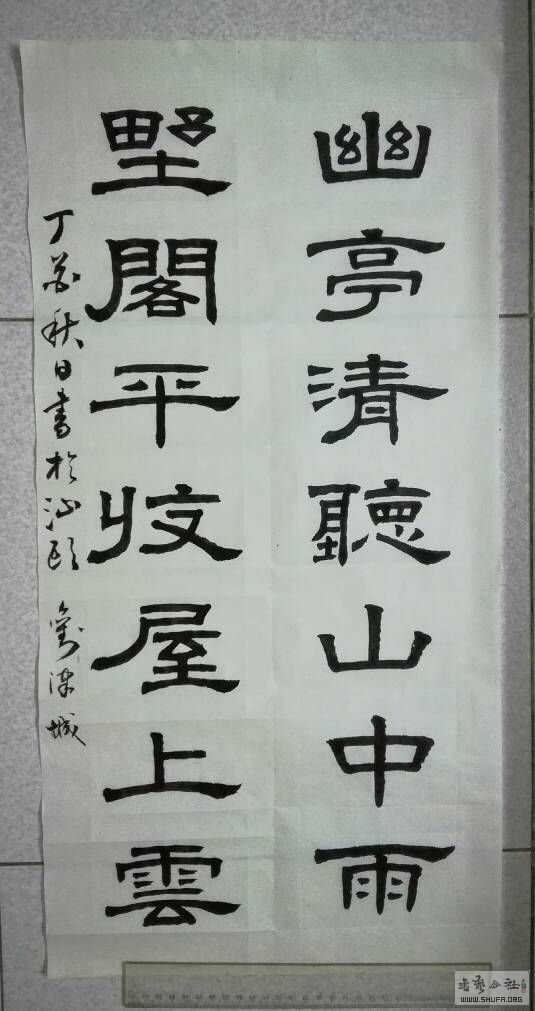 幽亭清聽山中雨
墅閣平收屋上雲
丁酉秋日書於汕頭 劉漢城
書藝公社
WWW.SHUFA.ORG